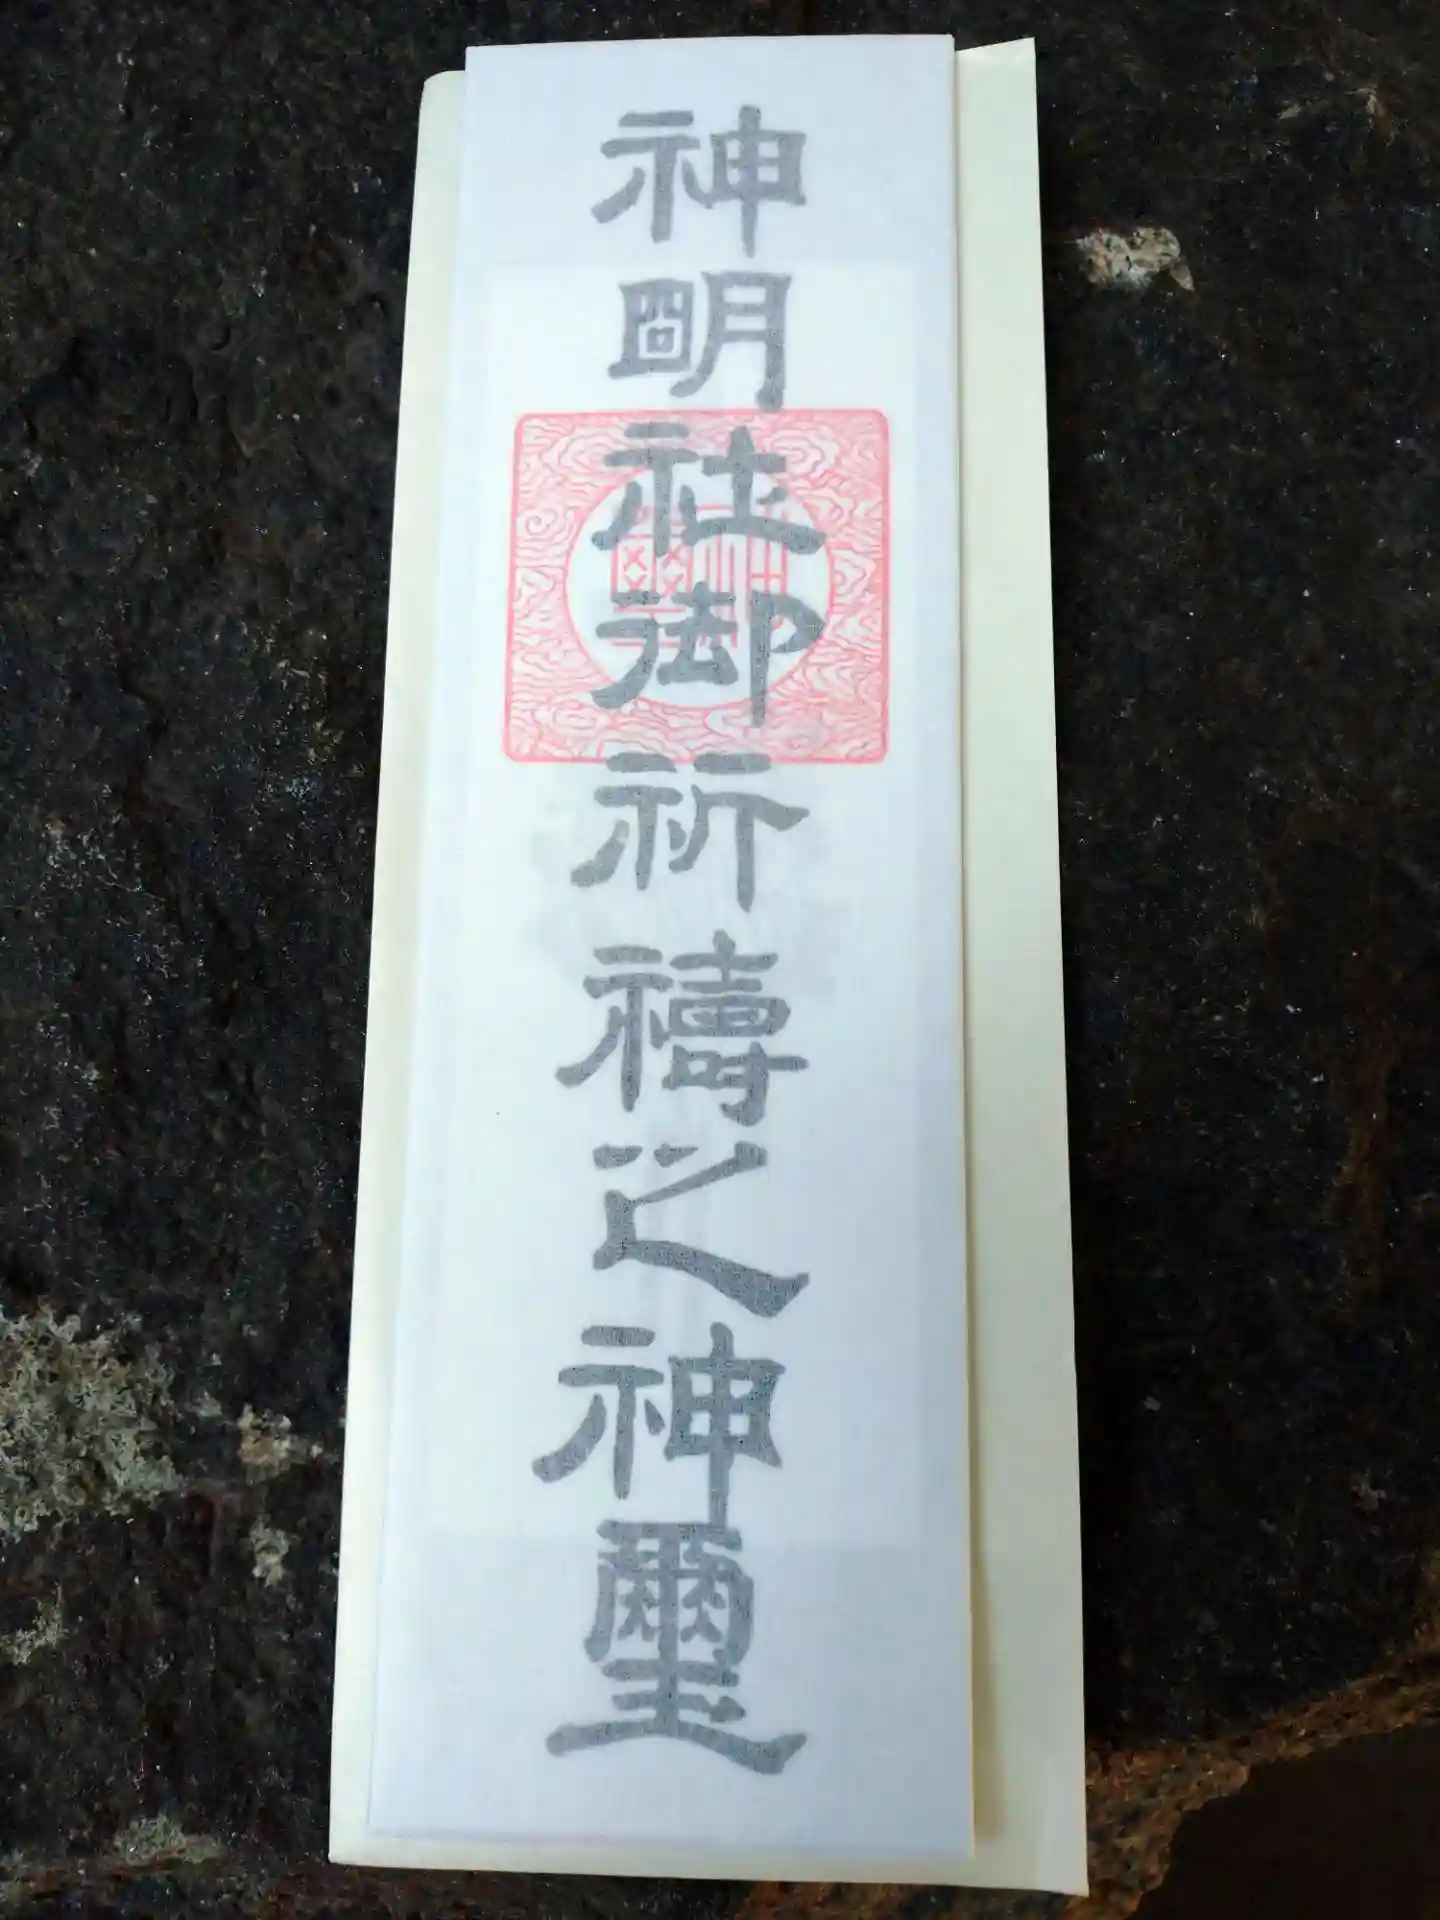 神明社御祈禱之神璽